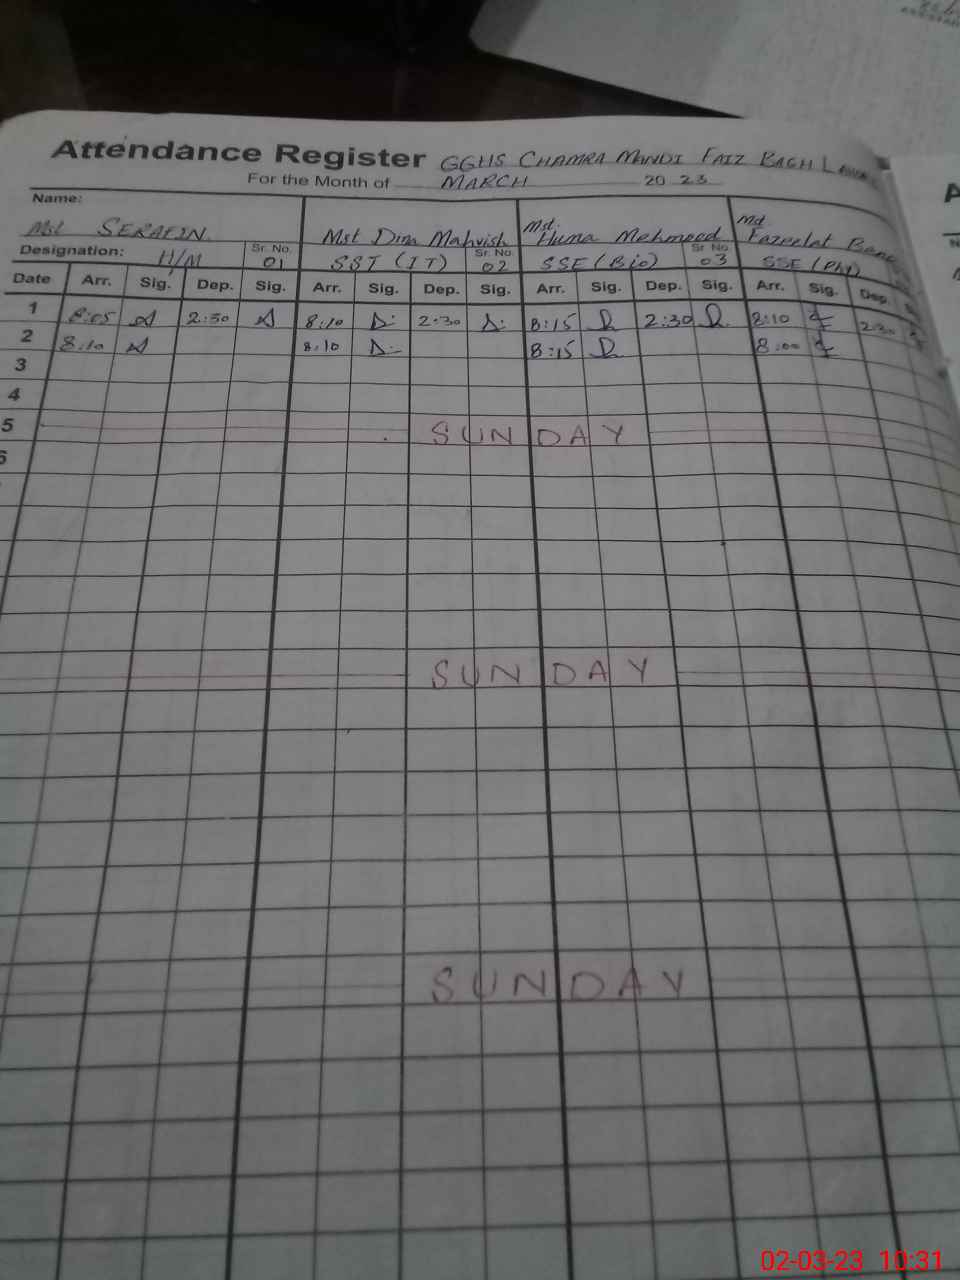 Attendance Register GGHS CHAMRA MANDI FAIZ BAGH
For the Month of MARCH 2023
Name:
Mst SERAFIN Mst Dina Mahvish Mst. Huma Mehmood Mst Fazeelat Bano
Designation: H/M Sr. No. 01 SST (IT) Sr. No. 02 SSE (Bio) Sr. No 03 SSE (Phy)
Date Arr. Sig. Dep. Sig. Arr. Sig. Dep. Sig. Arr. Sig. Dep. Sig. Arr. Sig. Dep.
1 8:05 2:30 8:10 2:30 8:15 2:30 8:10 2:30
2 8:10 8:10 8:15 8:00
3
4
5 SUNDAY
6
SUNDAY
SUNDAY
02-03-23 10:31